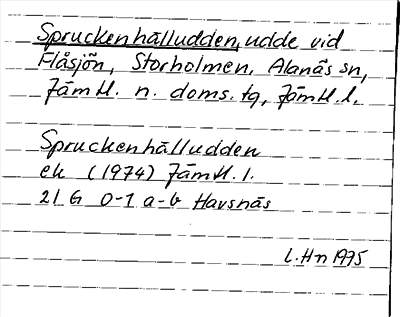 Spruckenhälludden, udde vid
Flåsjön, Storholmen, Alanäs sn,
Jämtl. n. doms. tg, Jämtl. l.
Spruckenhälludden
ek (1974) Jämtl. l.
21 G 0-1 a-b Havsnäs
L. Hn 1975